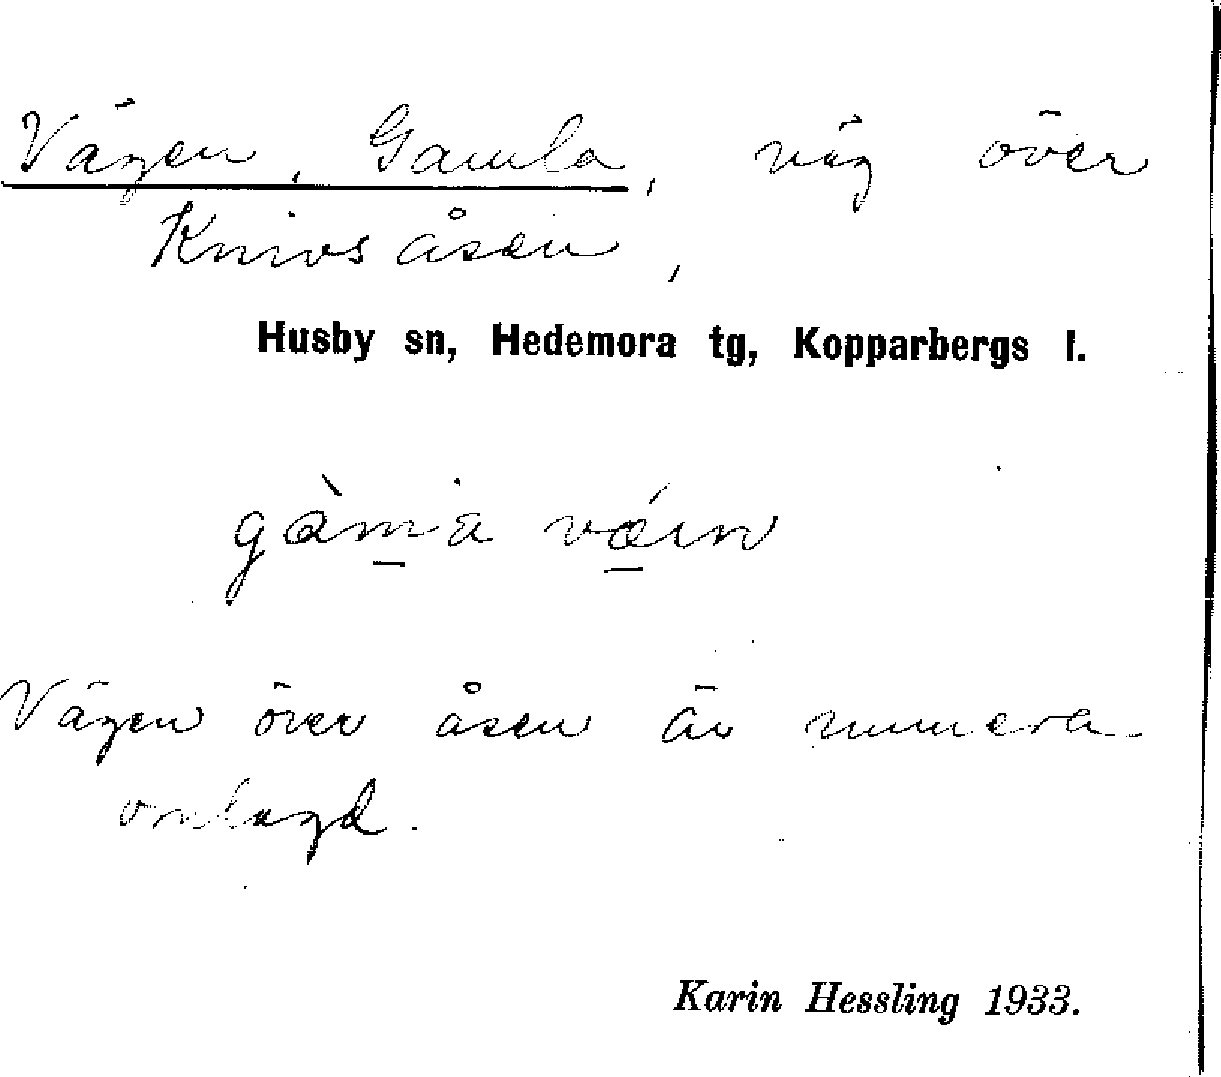 Vägen, Gamla, väg över
Knivsåsen,
Husby sn, Hedemora tg, Kopparbergs l.
Vägen över åsen är numera
omlagd.
Karin Hessling 1933.